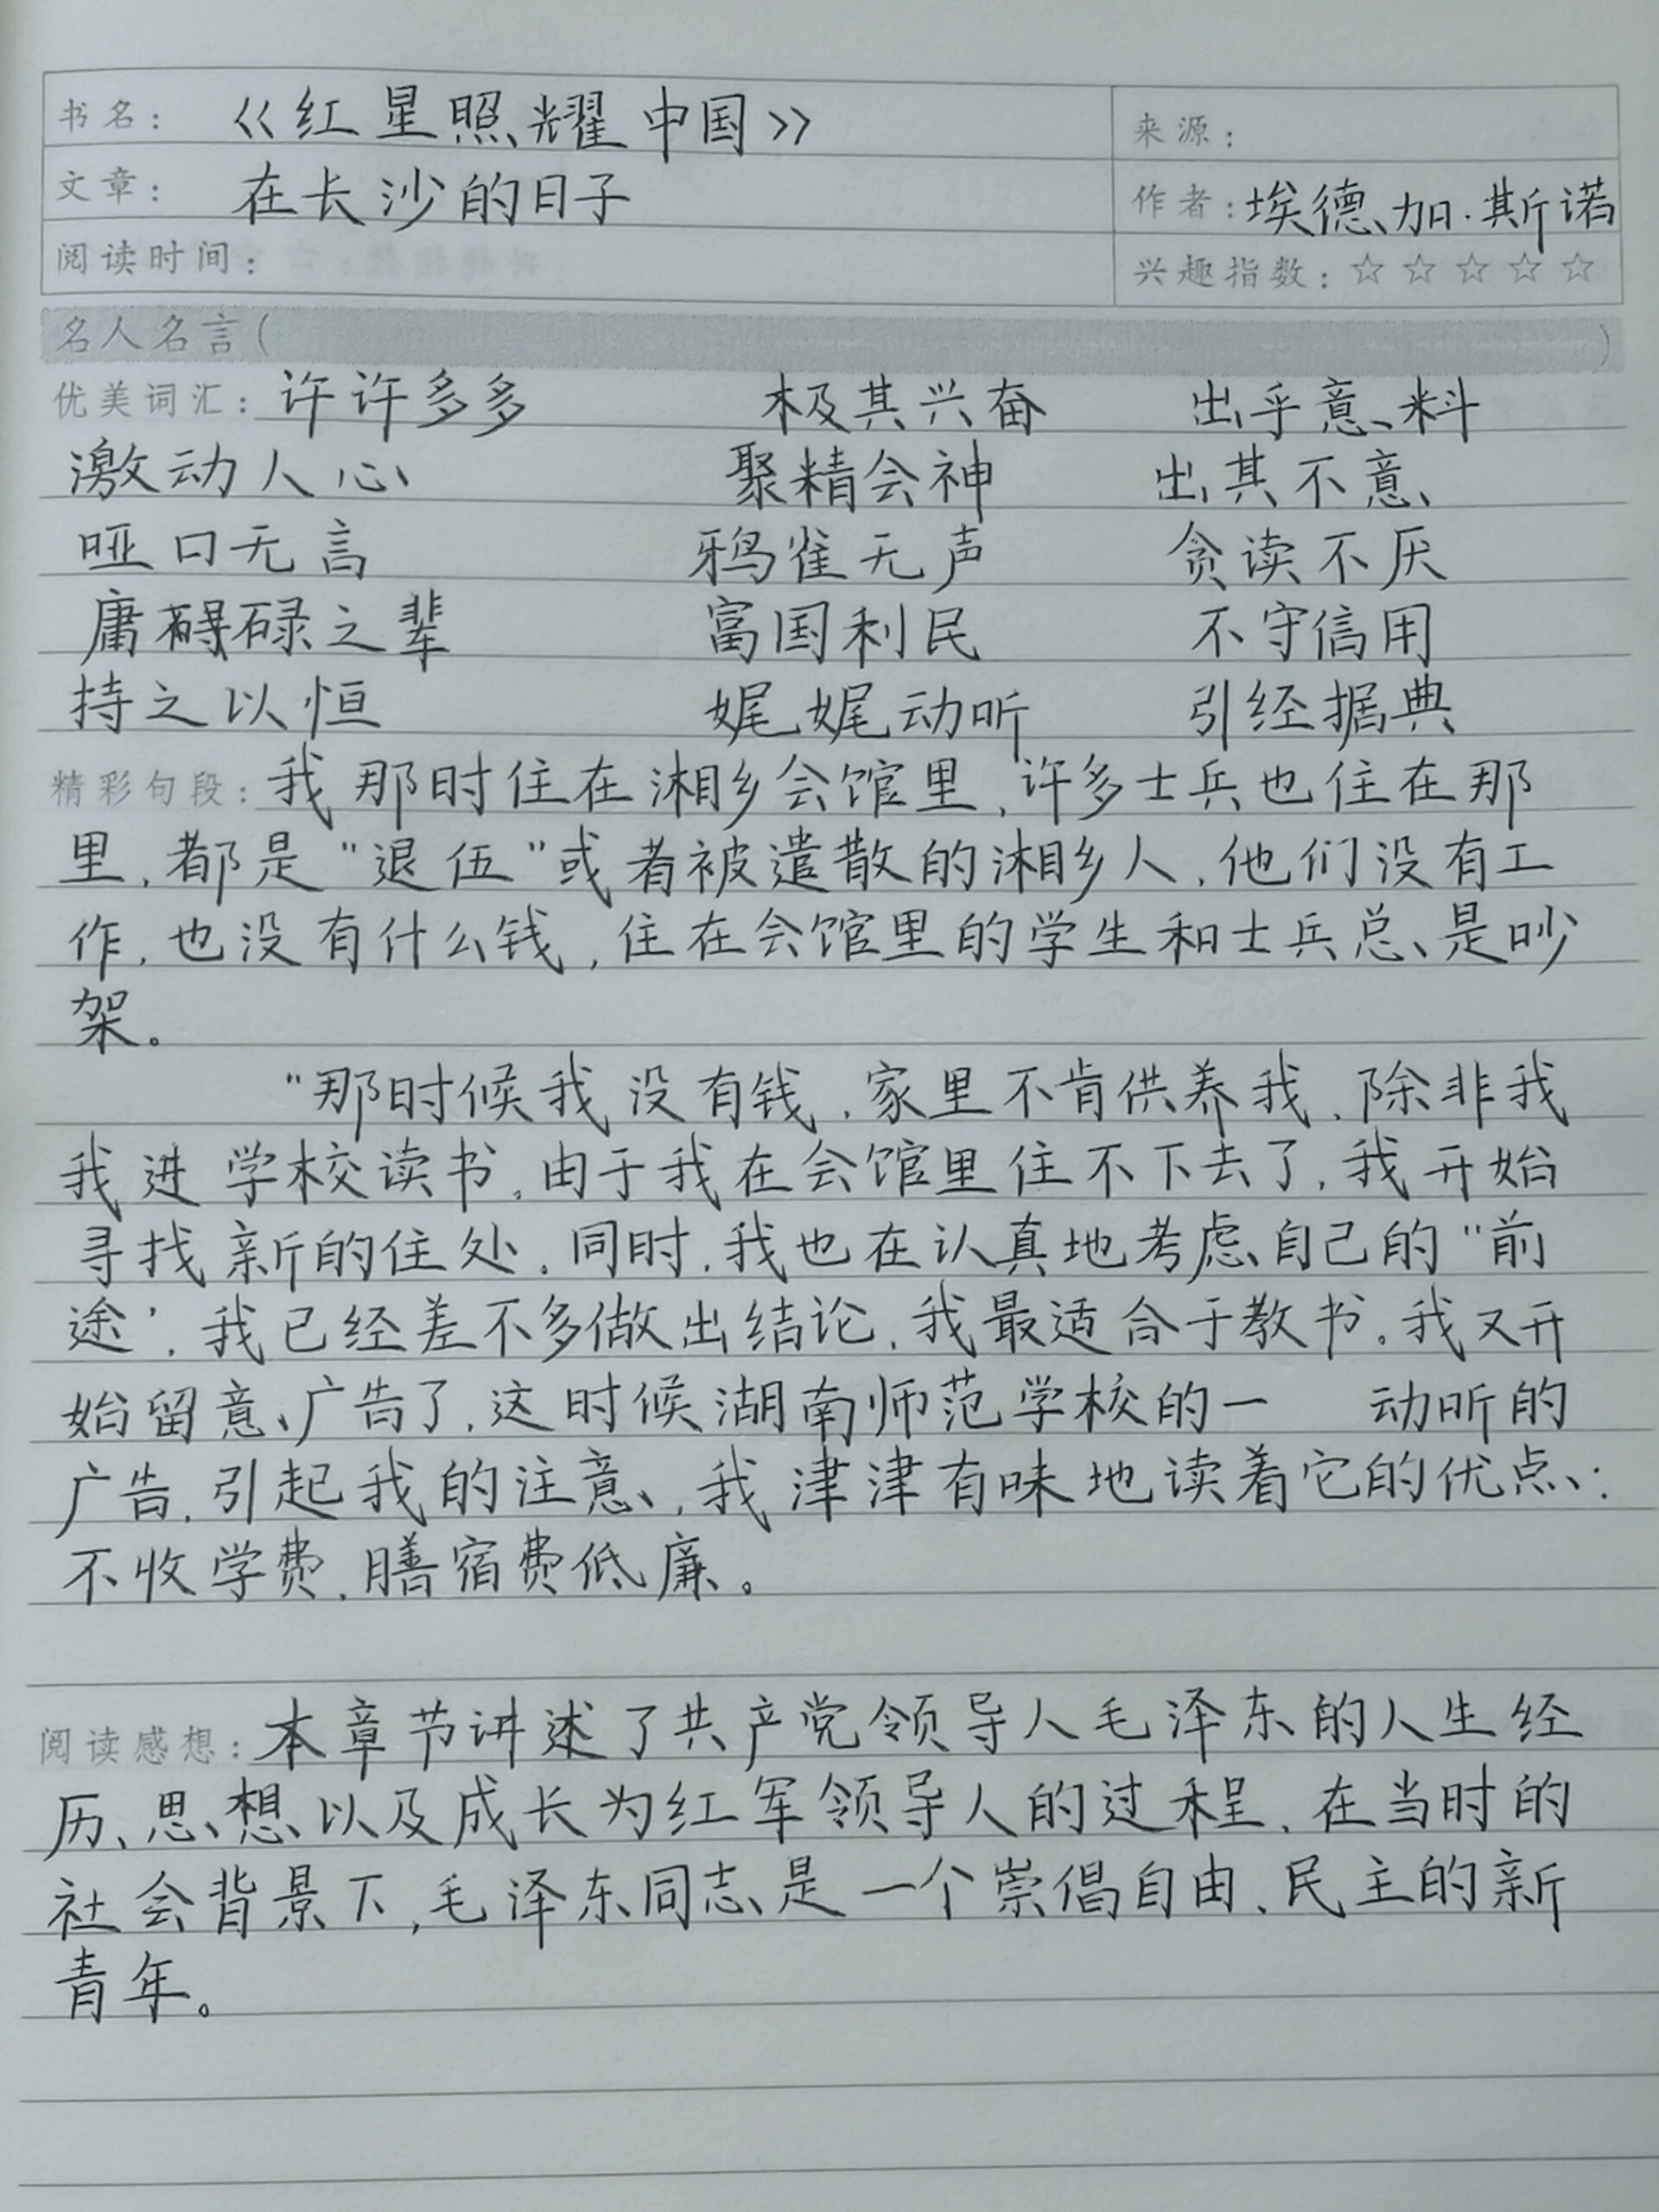 书名： 《红星照耀中国》 来源：
文章： 在长沙的日子 作者：埃德加·斯诺
阅读时间： 兴趣指数：☆☆☆☆☆
名人名言（ ）
优美词汇：许许多多 极其兴奋 出乎意料
激动人心 聚精会神 出其不意
哑口无言 鸦雀无声 贪读不厌
庸碌之辈 富国利民 不守信用
持之以恒 娓娓动听 引经据典
精彩句段：我那时住在湘乡会馆里，许多士兵也住在那
里，都是“退伍”或者被遣散的湘乡人，他们没有工
作，也没有什么钱，住在会馆里的学生和士兵总是吵
架。
“那时候我没有钱，家里不肯供养我，除非我
我进学校读书。由于我在会馆里住不下去了，我开始
寻找新的住处。同时，我也在认真地考虑自己的“前
途’，我已经差不多做出结论，我最适合于教书。我又开
始留意广告了，这时候湖南师范学校的一 动听的
广告，引起我的注意，我津津有味地读着它的优点：
不收学费，膳宿费低廉。
阅读感想：本章节讲述了共产党领导人毛泽东的人生经
历、思想以及成长为红军领导人的过程，在当时的
社会背景下，毛泽东同志是一个崇倡自由、民主的新
青年。